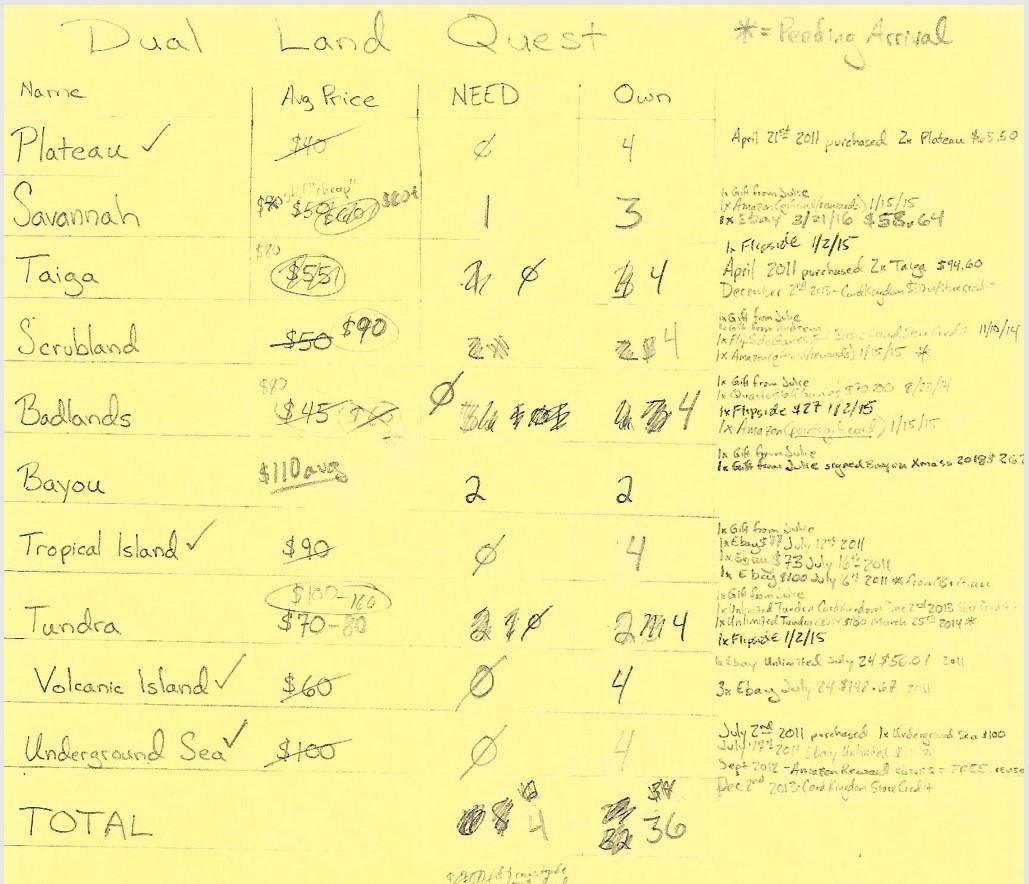 Dual Land Quest *= Pending Arrival
Name Avg Price NEED Own
Plateau ✓ $40 Ø 4 April 21st 2011 purchased 2x Plateau $63.50
Savannah $90 "cheap" $50 $60 $80+ 1 3 1x Gift from Julie
1x Amazon 1/15/15
1x Ebay 3/21/16 $58.64
1x Flipside 1/2/15
Taiga $80 $55 Ø 4 April 2011 purchased 2x Taiga $94.60
December 2nd 2013 - CardKingdom
Scrubland $50 $90 2 4 1x Gift from Julie
1x FlipSideGames Store Credit 11/10/14
1x Amazon 1/15/15 *
Badlands $90 $45 Ø 4 1x Gift from Julie
1x $70.00
1x Flipside $27 1/2/15
1x Amazon 1/15/15
Bayou $110 avg 2 2 1x Gift from Julie
1x Gift from Julie signed Bayou Xmass 2018 $267
Tropical Island ✓ $90 Ø 4 1x Gift from Julie
1x Ebay $77 July 12th 2011
1x Ebay $73 July 16th 2011
1x Ebay $100 July 6th 2011 * from Britian
Tundra $100-160 $70-80 Ø 4 1x Gift from Julie
1x Unlimited Tundra CardKingdom Dec 2nd 2013 Store Credit
1x Unlimited Tundra $100 March 25th 2014 *
1x Flipside 1/2/15
Volcanic Island ✓ $60 Ø 4 1x Ebay Unlimited July 24 $56.01 2011
3x Ebay July 24 $148.67 2011
Underground Sea ✓ $100 Ø 4 July 2nd 2011 purchased 1x Underground Sea $100
July 17th 2011 Ebay Unlimited
Sept 2012 - Amazon Reward = FREE
Dec 2nd 2013 - Card Kingdom Store Credit
TOTAL 4 36